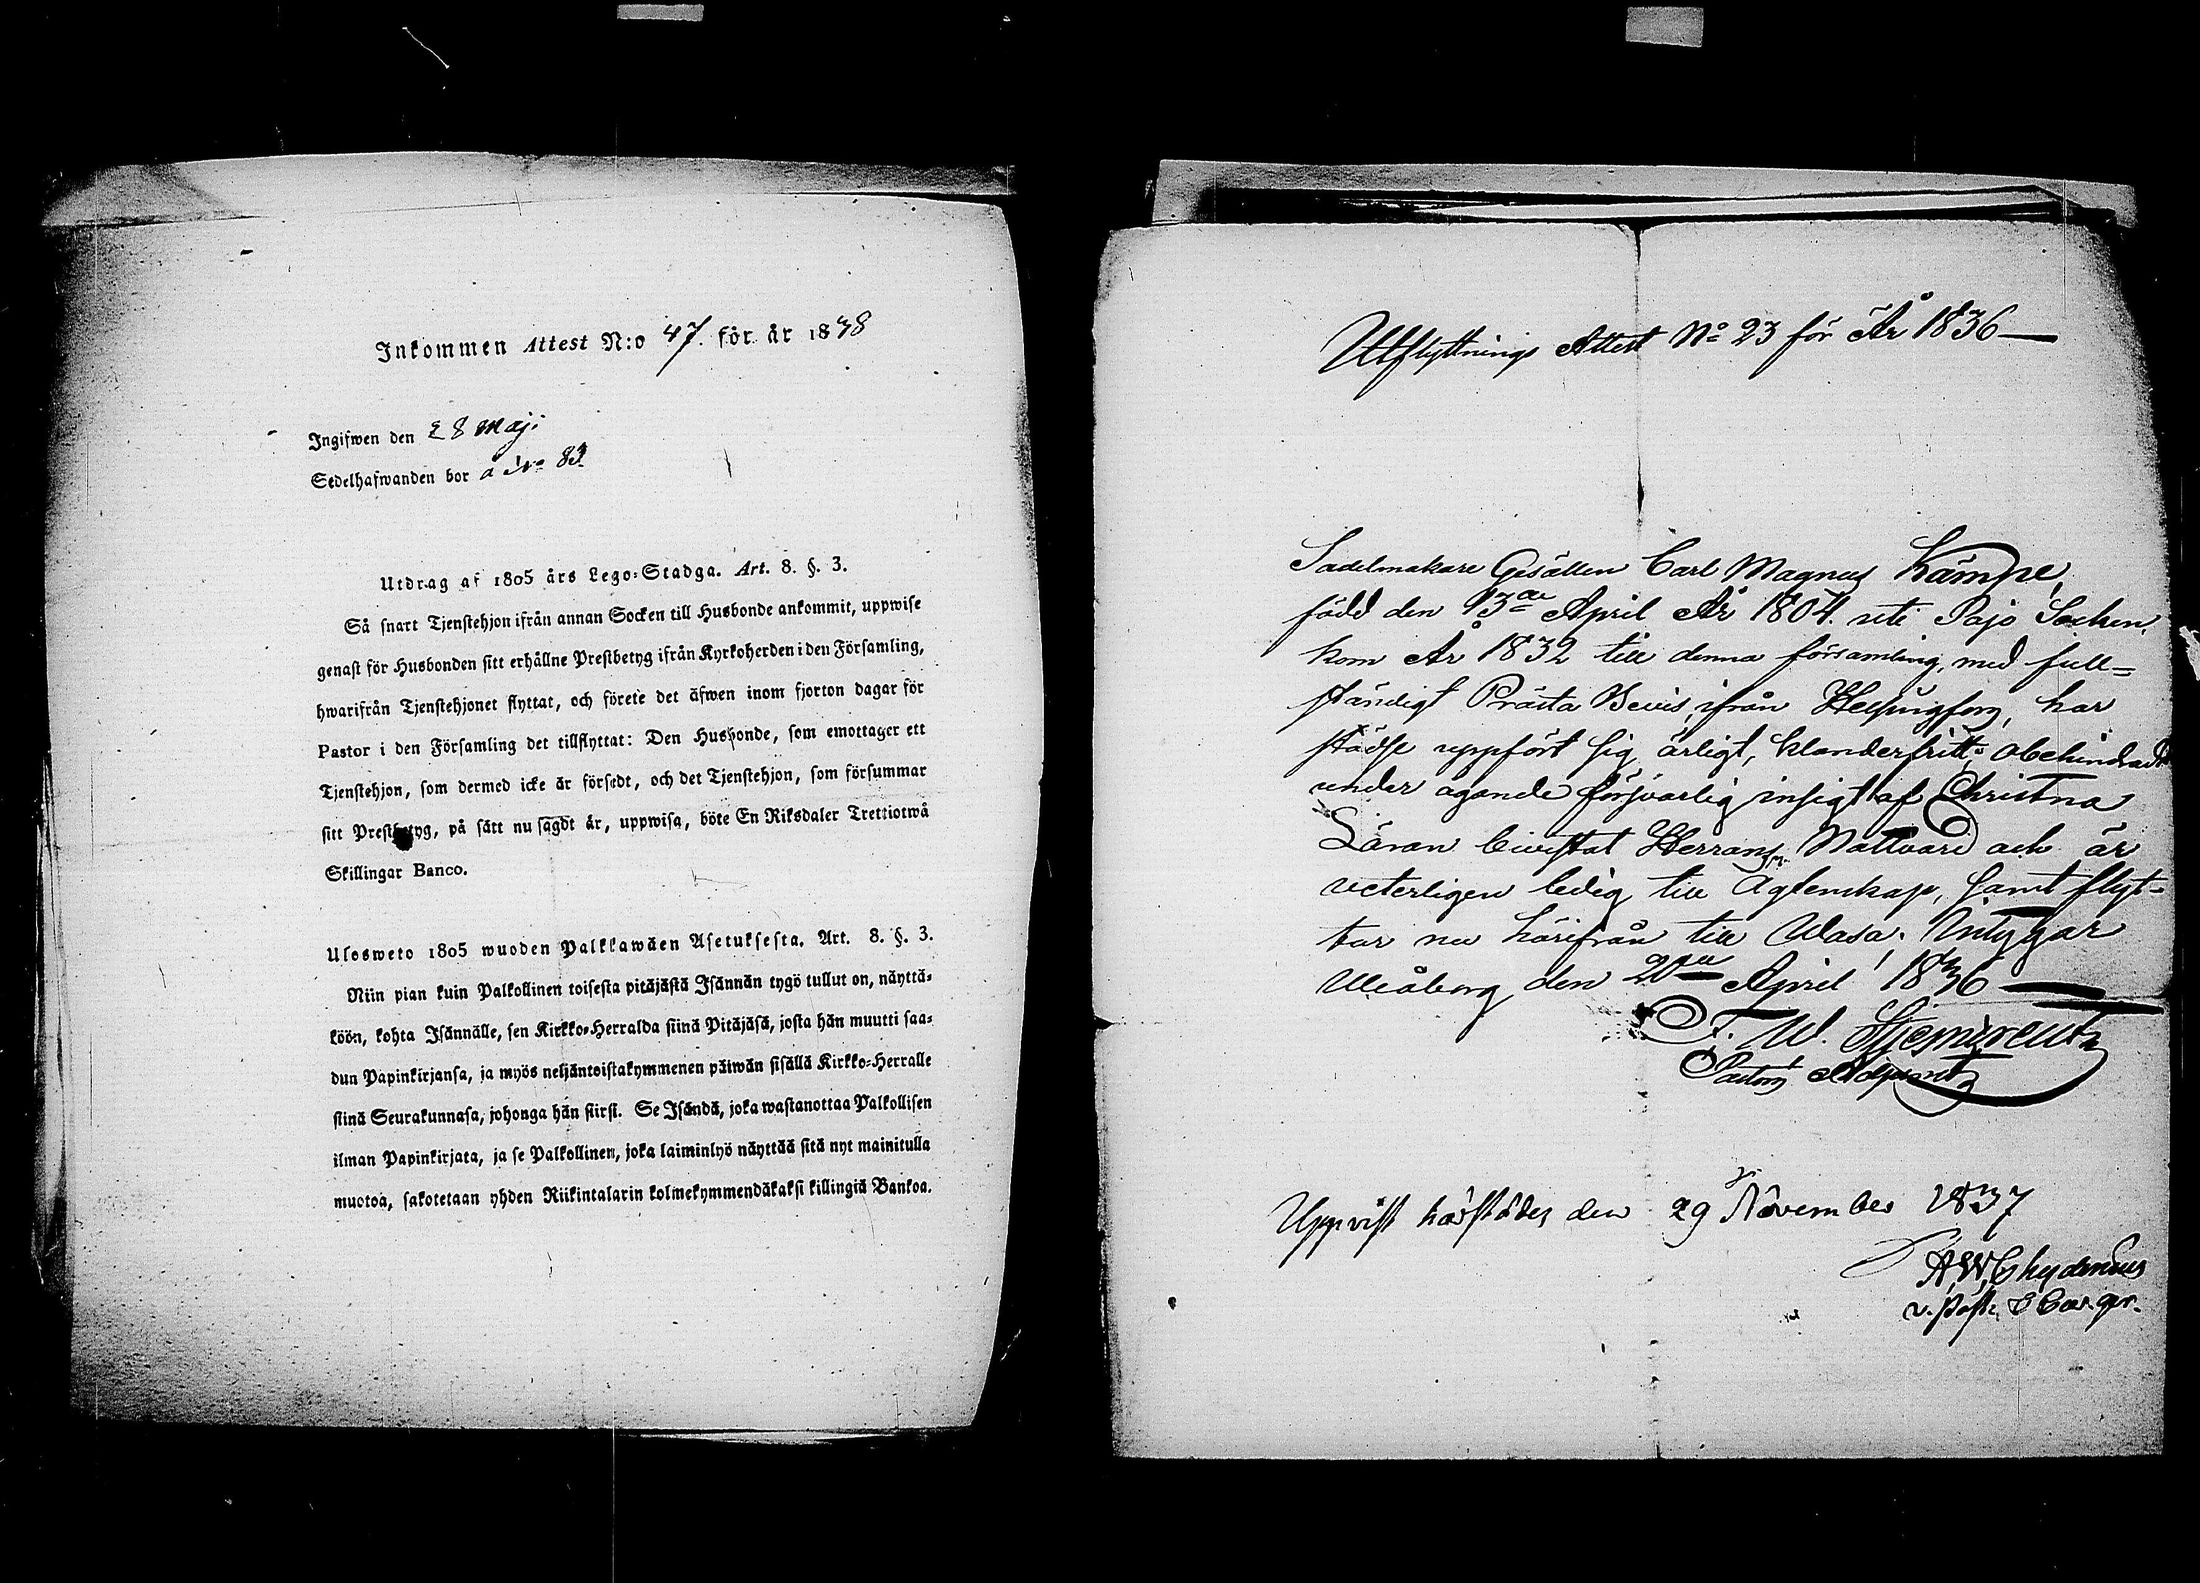 Inkommen Attest N:o 47. för år 1838
Ingifwen den 28 Maji
Sedelhafwanden bor å No 83
Utdrag af 1805 års Lego-Stadga. Art. 8. §. 3.
Så snart Tjenstehjon ifrån annan Socken till Husbonde ankommit, uppwise
genast för Husbonden sitt erhållne Prestbetyg ifrån Kyrkoherden i den Församling,
hwarifrån Tjenstehjonet flyttat, och förete det äfwen inom fjorton dagar för
Pastor i den Församling det tillflyttat: Den Husbonde, som emottager ett
Tjenstehjon, som dermed icke är försedt, och det Tjenstehjon, som försummar
sitt Prestbetyg, på sätt nu sagdt är, uppwisa, böte En Riksdaler Trettiotwå
Skillingar Banco.
Ulosweto 1805 wuoden Palkkawäen Asetuksesta. Art. 8. §. 3.
Niin pian kuin Palkollinen toisesta pitäjästä Isännän tygö tullut on, näyttä-
köön, kohta Isännälle, sen Kirkko-Herralda siinä Pitäjäsä, josta hän muutti saa-
dun Papinkirjansa, ja myös neljäntoistakymmenen päiwän sisällä Kirkko-Herralle
siinä Seurakunnasa, johonga hän siirsi. Se Isändä, joka wastanottaa Palkollisen
ilman Papinkirjata, ja se Palkollinen, joka laiminlyö näyttää sitä nyt mainitulla
muotoa, sakotetaan yhden Riikintalarin kolmekymmendäkaksi killingiä Bankoa.
Utflyttnings Attest No 23 för År 1836
Sadelmakare Gesällen Carl Magnus Kämpe,
född den 13de April År 1804. uti Pojo Socken,
kom År 1832 till denna församling, med full-
ständigt Prästa Bevis, ifrån Helsingfors, har
städse uppfört sig ärligt, klanderfritt, obehindradt
under ägande försvarlig insigt af Christna
Läran bivistat Herrans Nattvard och är
veterligen ledig till Ägtenskap, samt flyt-
tar nu härifrån till Wasa. Intygar
Uleåborg den 20de April 1836
F. W.
Pastors Adjunct
Uppvist härstädes den 29 November 1837
A W Chydenius